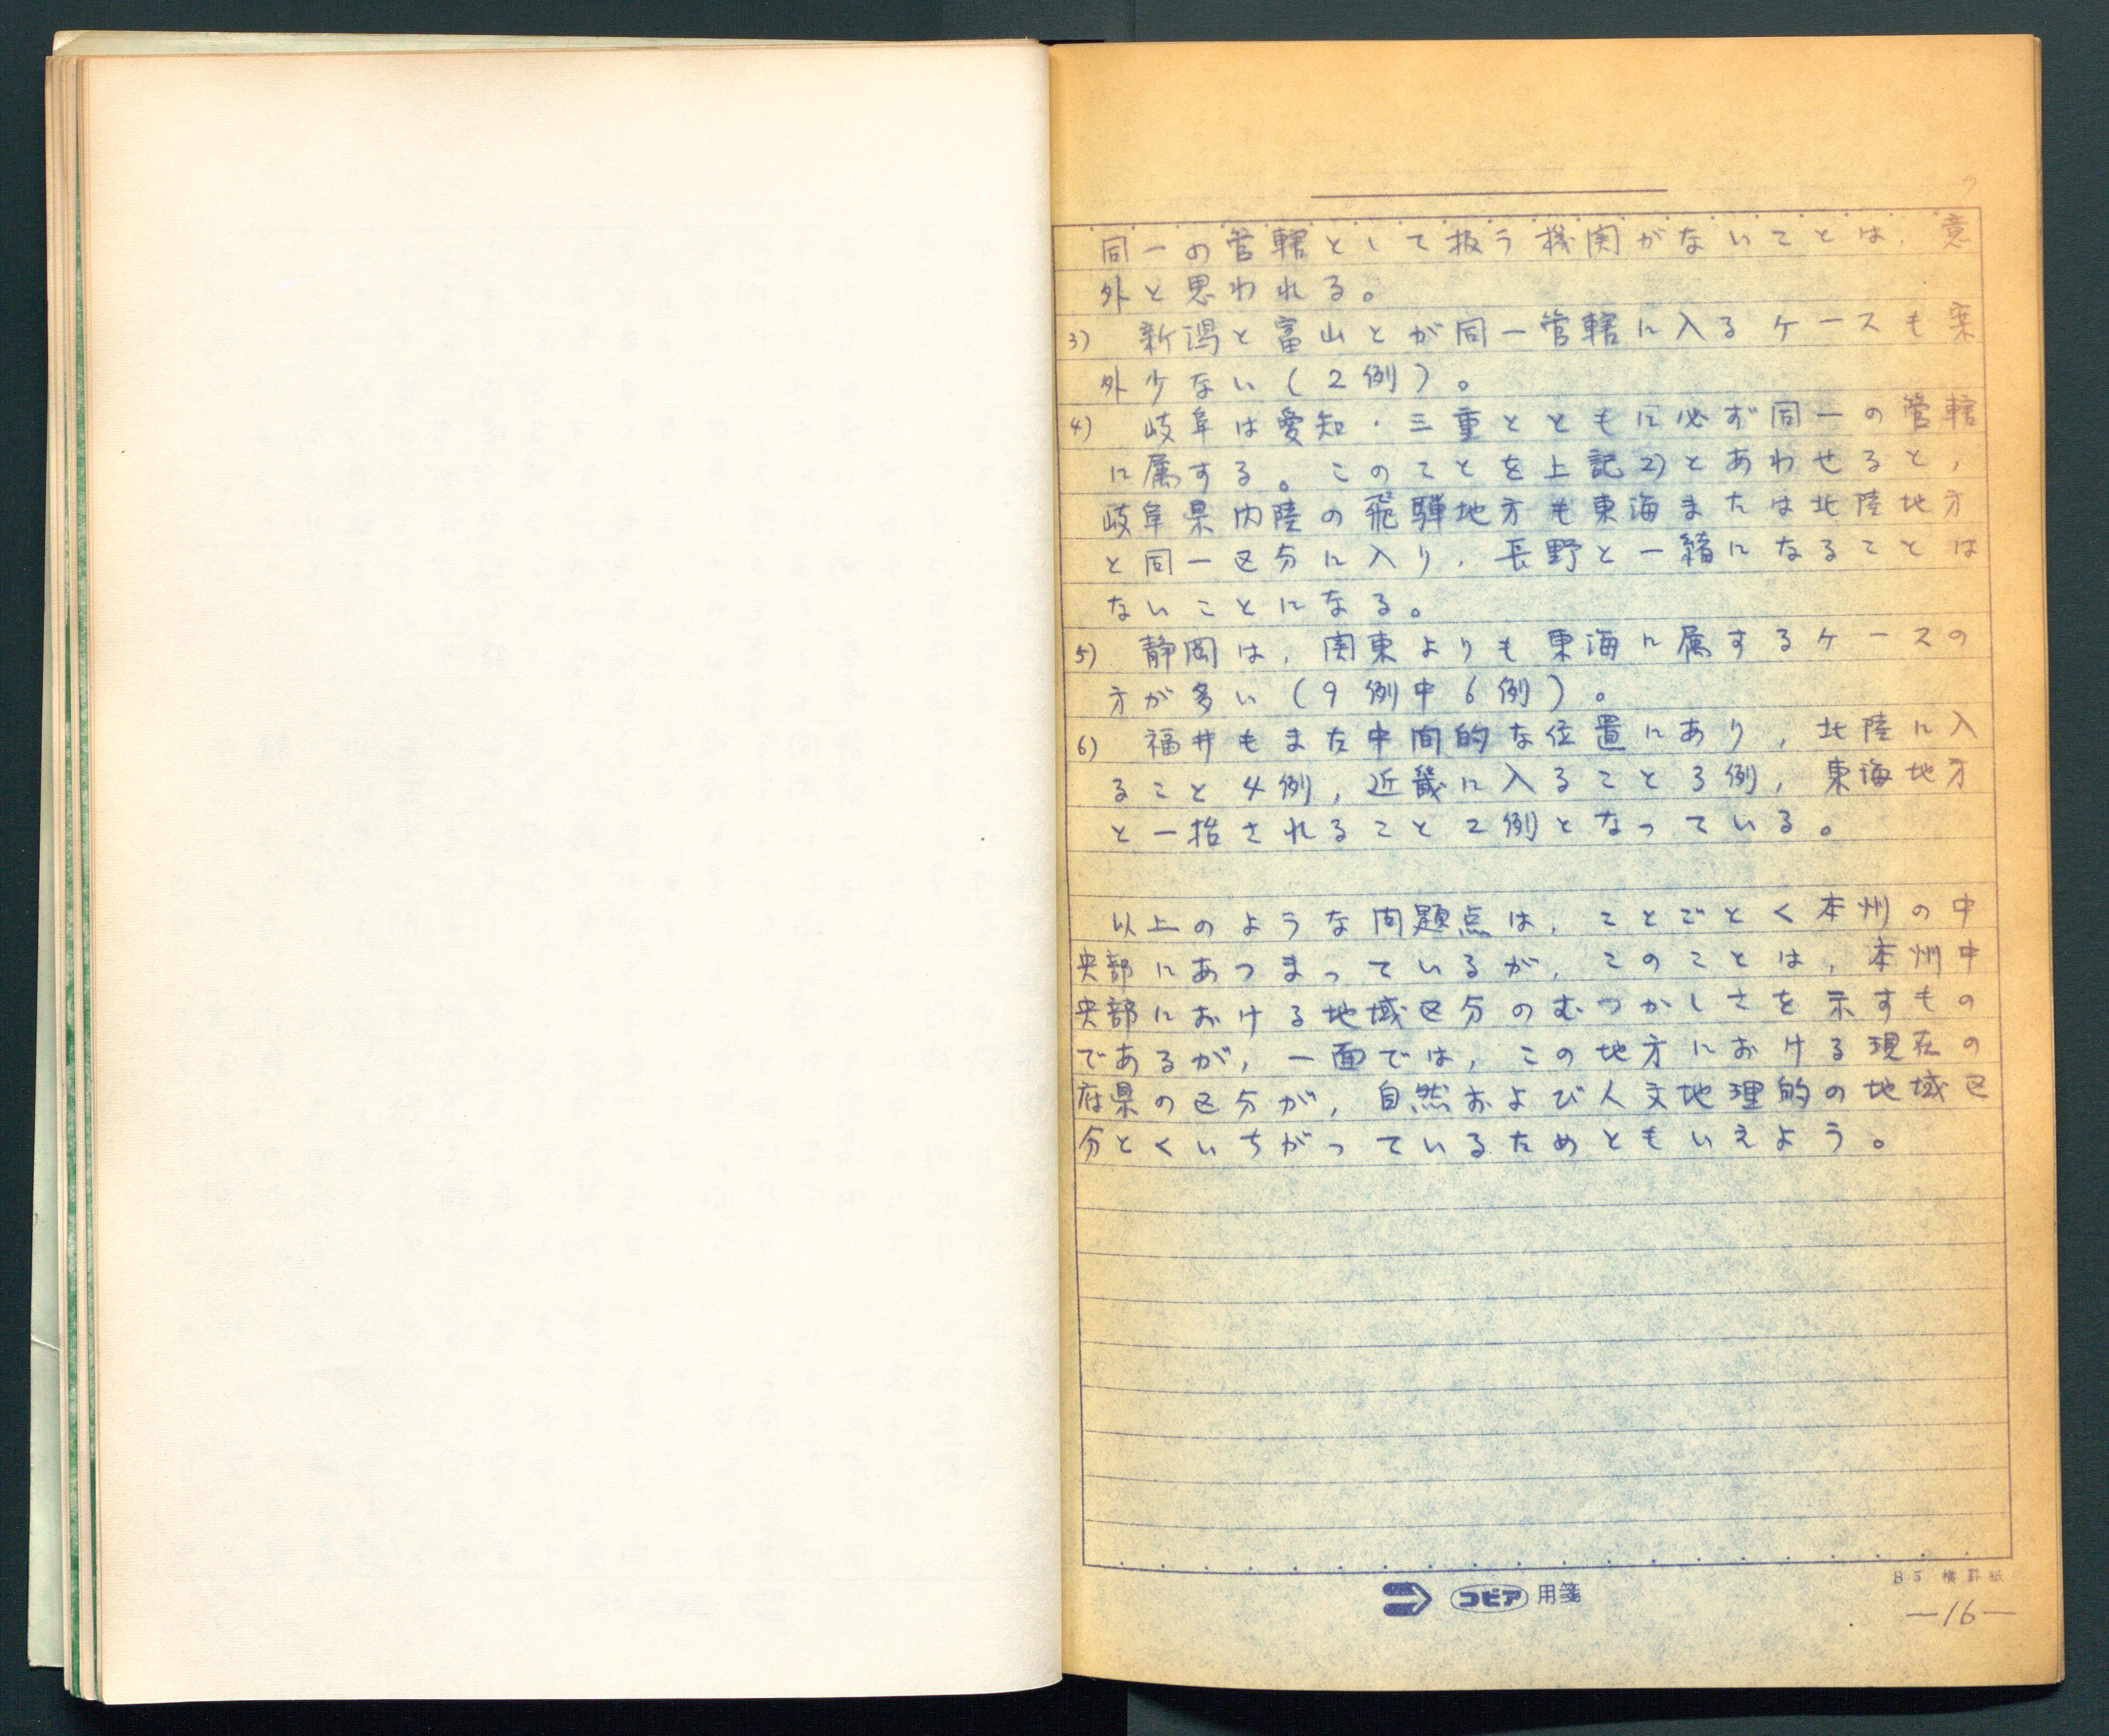 同一の管轄として扱う機関がないことは，意
外と思われる。
3) 新潟と富山とが同一管轄に入るケースも案
外少ない(2例)。
4) 岐阜は愛知・三重とともに必ず同一の管轄
に属する。このことを上記2)とあわせると，
岐阜県内陸の飛騨地方も東海または北陸地方
と同一区分に入り，長野と一緒になることは
ないことになる。
5) 静岡は，関東よりも東海に属するケースの
方が多い(9例中6例)。
6) 福井もまた中間的な位置にあり，北陸に入
ること4例，近畿に入ること3例，東海地方
と一括されること2例となっている。
以上のような問題点は，ことごとく本州の中
央部にあつまっているが，このことは，本州中
央部における地域区分のむつかしさを示すもの
であるが，一面では，この地方における現在の
府県の区分が，自然および人文地理的の地域区
分とくいちがっているためともいえよう。
コピア用箋
B5 横罫紙
—16—